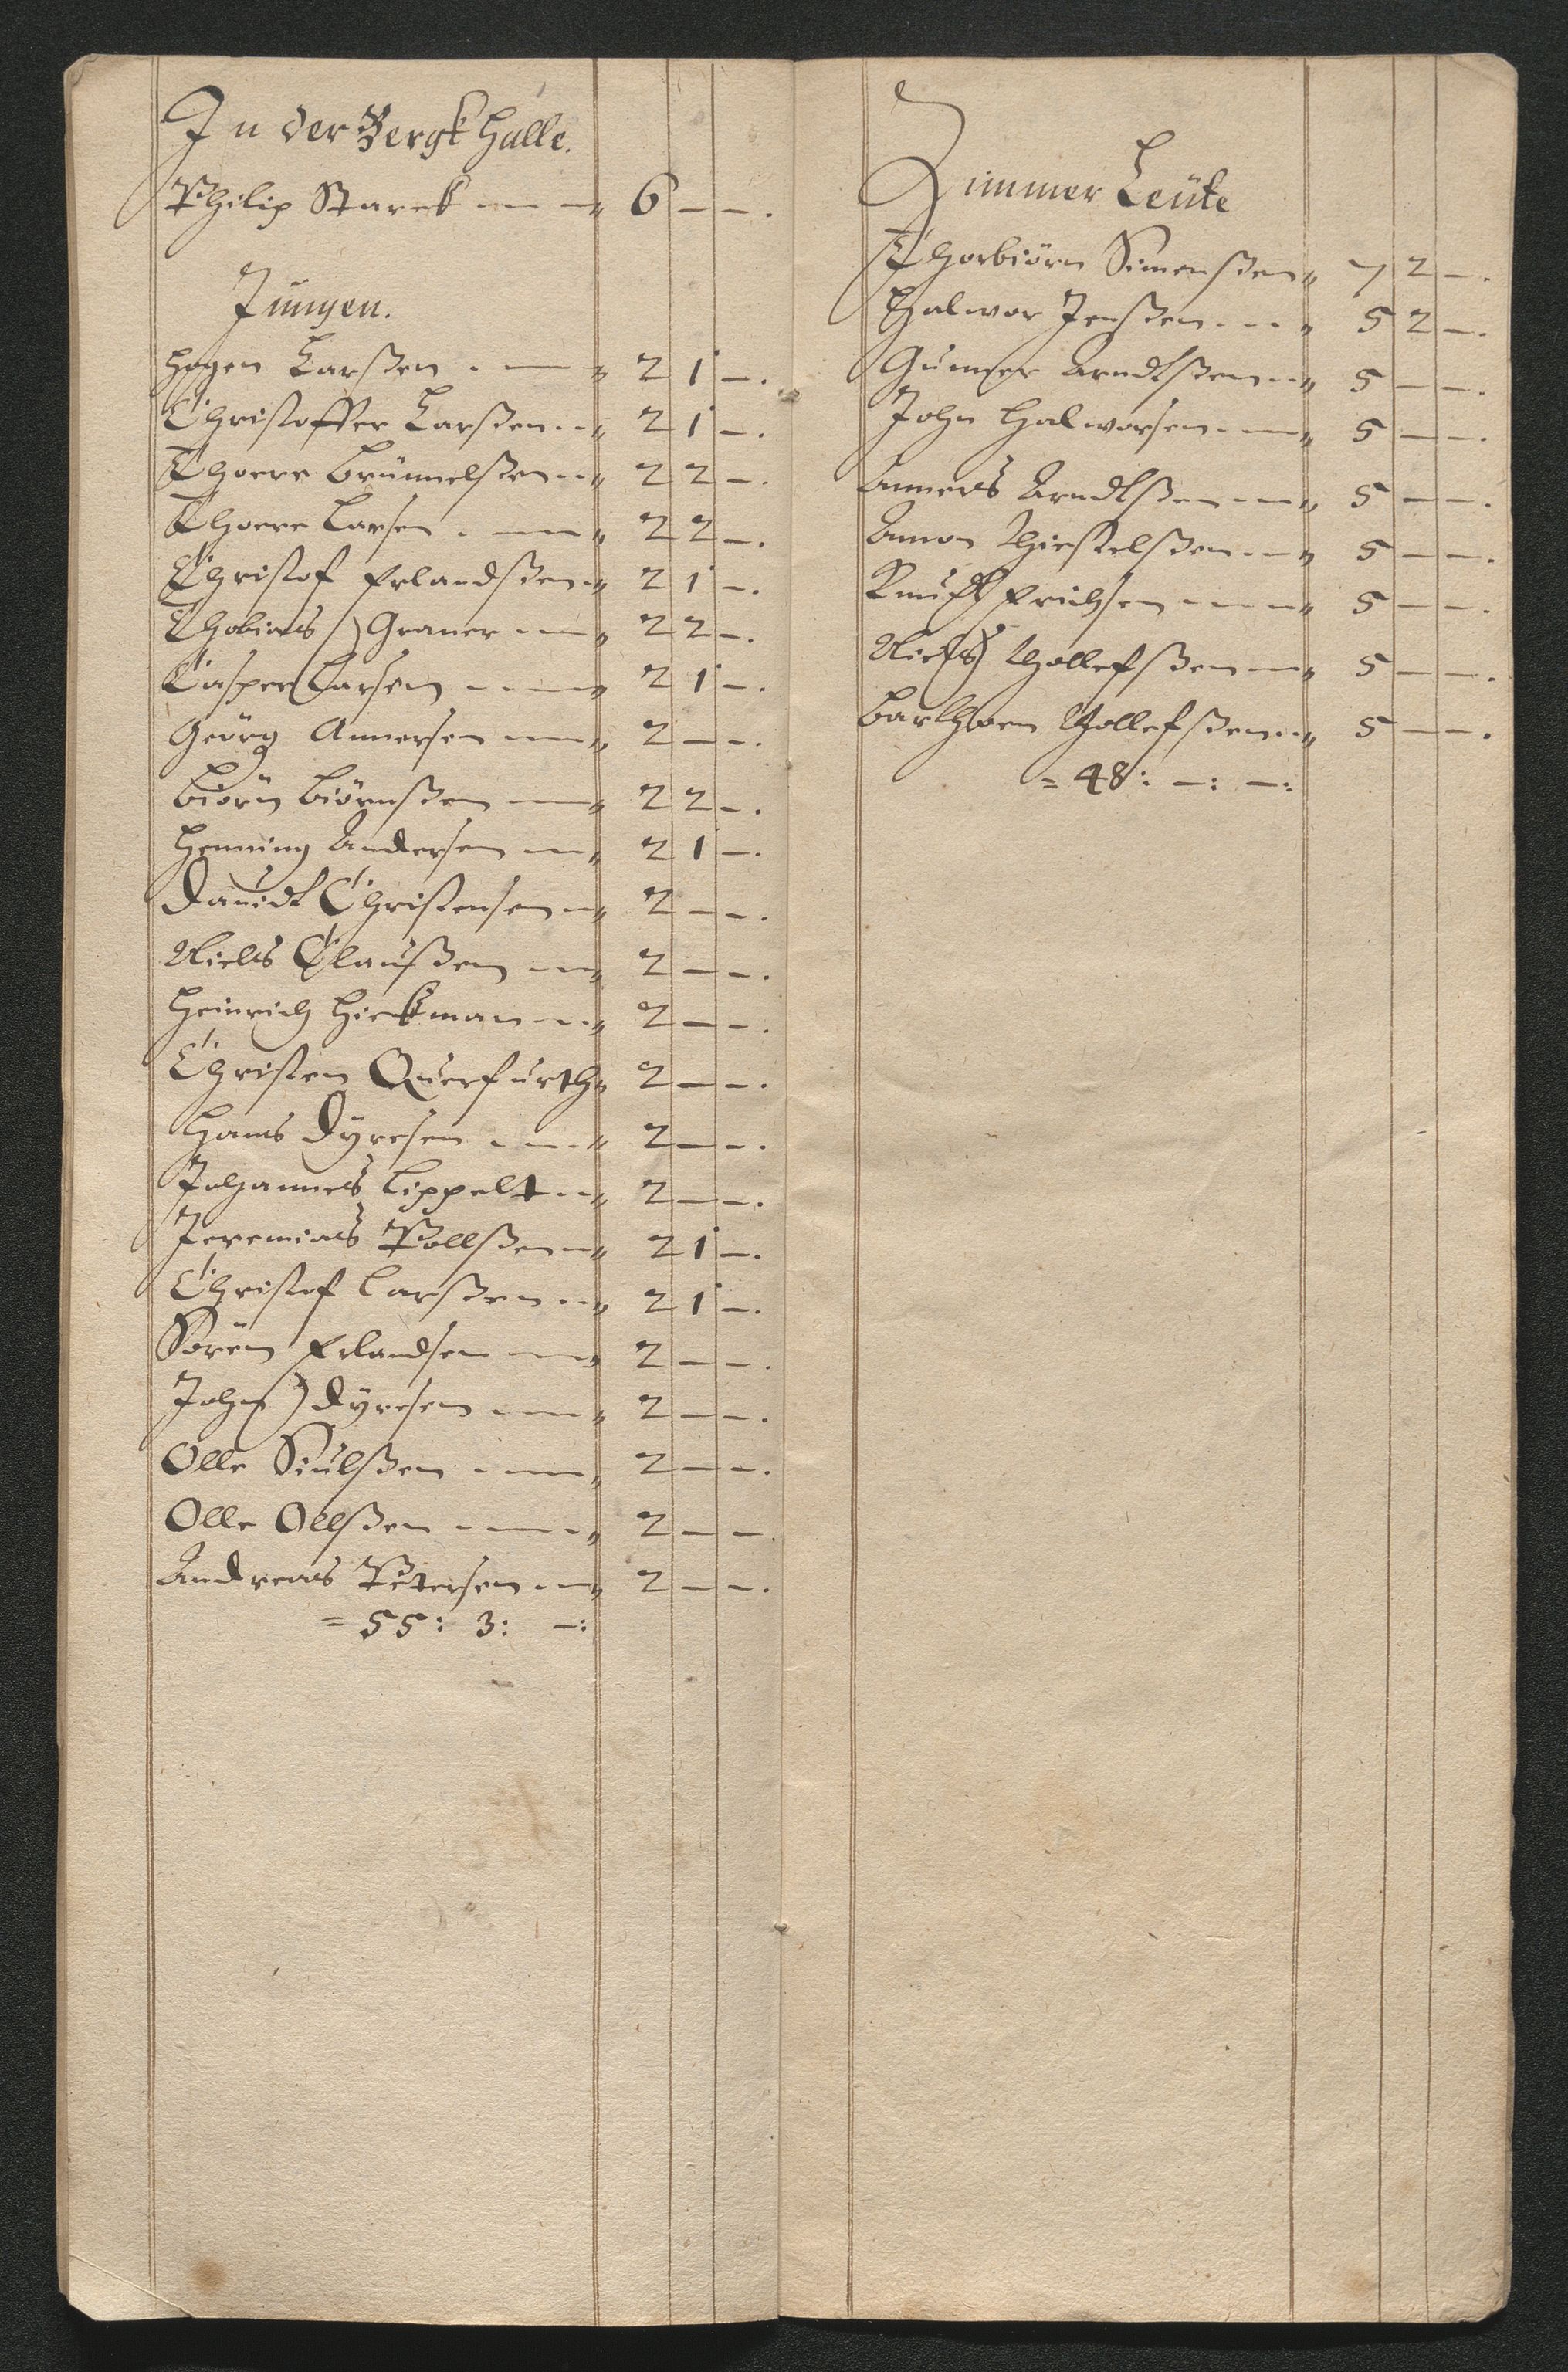 In der Bergk Halle.
Philip Starck - - " 6 — — .
Jungen.
Hogen Larßen . — " 2 1 — .
Christoffer Larßen - - " 2 1 — .
Thoere Brünnelßen - - " 2 2 — .
Thoere Larsen . — " 2 2 — .
Christof Erlandßen - " 2 1 — .
Thobias Graner - — " 2 2 — .
Casper Larsen - - — " 2 1 — .
Geörg Annersen - — " 2 — — .
Biörn Biörnßen - — " 2 2 — .
Henning Andersen - — " 2 1 — .
Dauidt Christensen - " 2 — — .
Niels Claußen - — " 2 — — .
Heinrich Hickman - - " 2 — — .
Christen Querfurth " 2 — — .
Hans Dÿresen . — - " 2 — — .
Johannes Lippelt - - " 2 — — .
Jeremias Pollßen - " 2 1 — .
Christof Larßen - - " 2 1 — .
Sören Erlandsen - — " 2 — — .
John Dÿresen - — " 2 — — .
Olle Siulßen - — " 2 — — .
Olle Ollßen - — - " 2 — — .
Andreas Petersen . — " 2 — — .
= 55 : 3 : — :
Zimmer Leüte
Thorbiörn Simenßen " 7 2 — .
Halwor Jenßen . - - " 5 2 — .
Gunner Arndtßen - - " 5 — — .
John Halworsen - — " 5 — — .
Anners Arndtßen - — " 5 — — .
Amon Thiestelßen - — " 5 — — .
Knudt Erichsen - — - " 5 — — .
Niels Thollefßen - — " 5 — — .
Thollefßen - - " 5 — — .
= 48 : — : — :